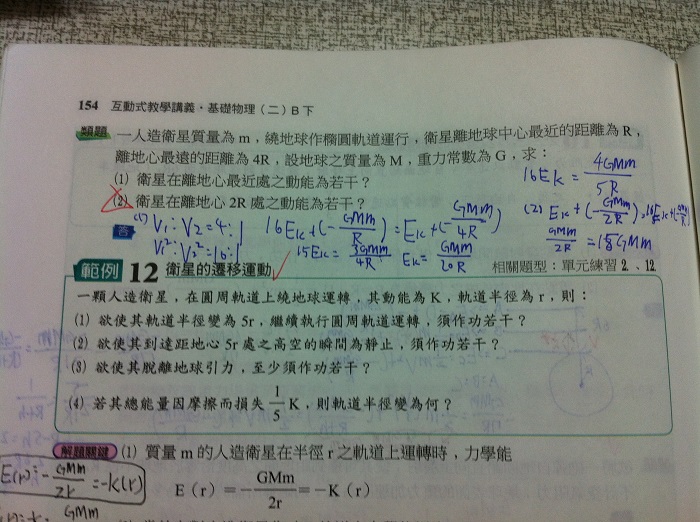 154 互動式教學講義・基礎物理(二)B下
類題 一人造衛星質量為m,繞地球作橢圓軌道運行,衛星離地球中心最近的距離為R,
離地心最遠的距離為4R,設地球之質量為M,重力常數為G,求:
(1) 衛星在離地心最近處之動能為若干?
16Ek = 4GMm/5R
(2) 衛星在離地心2R處之動能為若干?
答 (1) V₁:V₂=4:1 16Ek+(-GMm/R)=Ek+(-GMm/4R)
V₁²:V₂²=16:1 15Ek=3GMm/4R Ek=GMm/20R
範例 12 衛星的遷移運動 相關題型:單元練習2、12
一顆人造衛星,在圓周軌道上繞地球運轉,其動能為K,軌道半徑為r,則:
(1) 欲使其軌道半徑變為5r,繼續執行圓周軌道運轉,須作功若干?
(2) 欲使其到達距地心5r處之高空的瞬間為靜止,須作功若干?
(3) 欲使其脫離地球引力,至少須作功若干?
(4) 若其總能量因摩擦而損失1/5K,則軌道半徑變為何?
解題關鍵 (1) 質量m的人造衛星在半徑r之軌道上運轉時,力學能
E(r)=-GMm/2r=-K(r)
E(r)=-GMm/2r=-K(r)
GMm